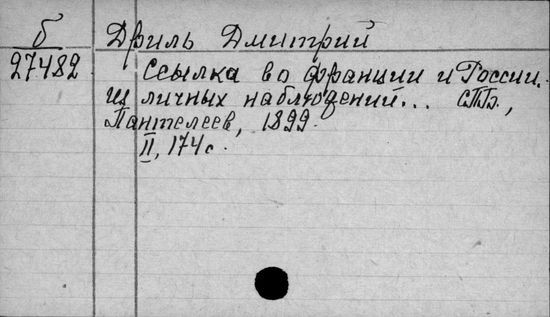 б
27482
Дриль Дмитрий
Ссылка во Франции и России.
Из личных наблюдений... СПб.,
Пантелеев, 1899.
II, 174 с.